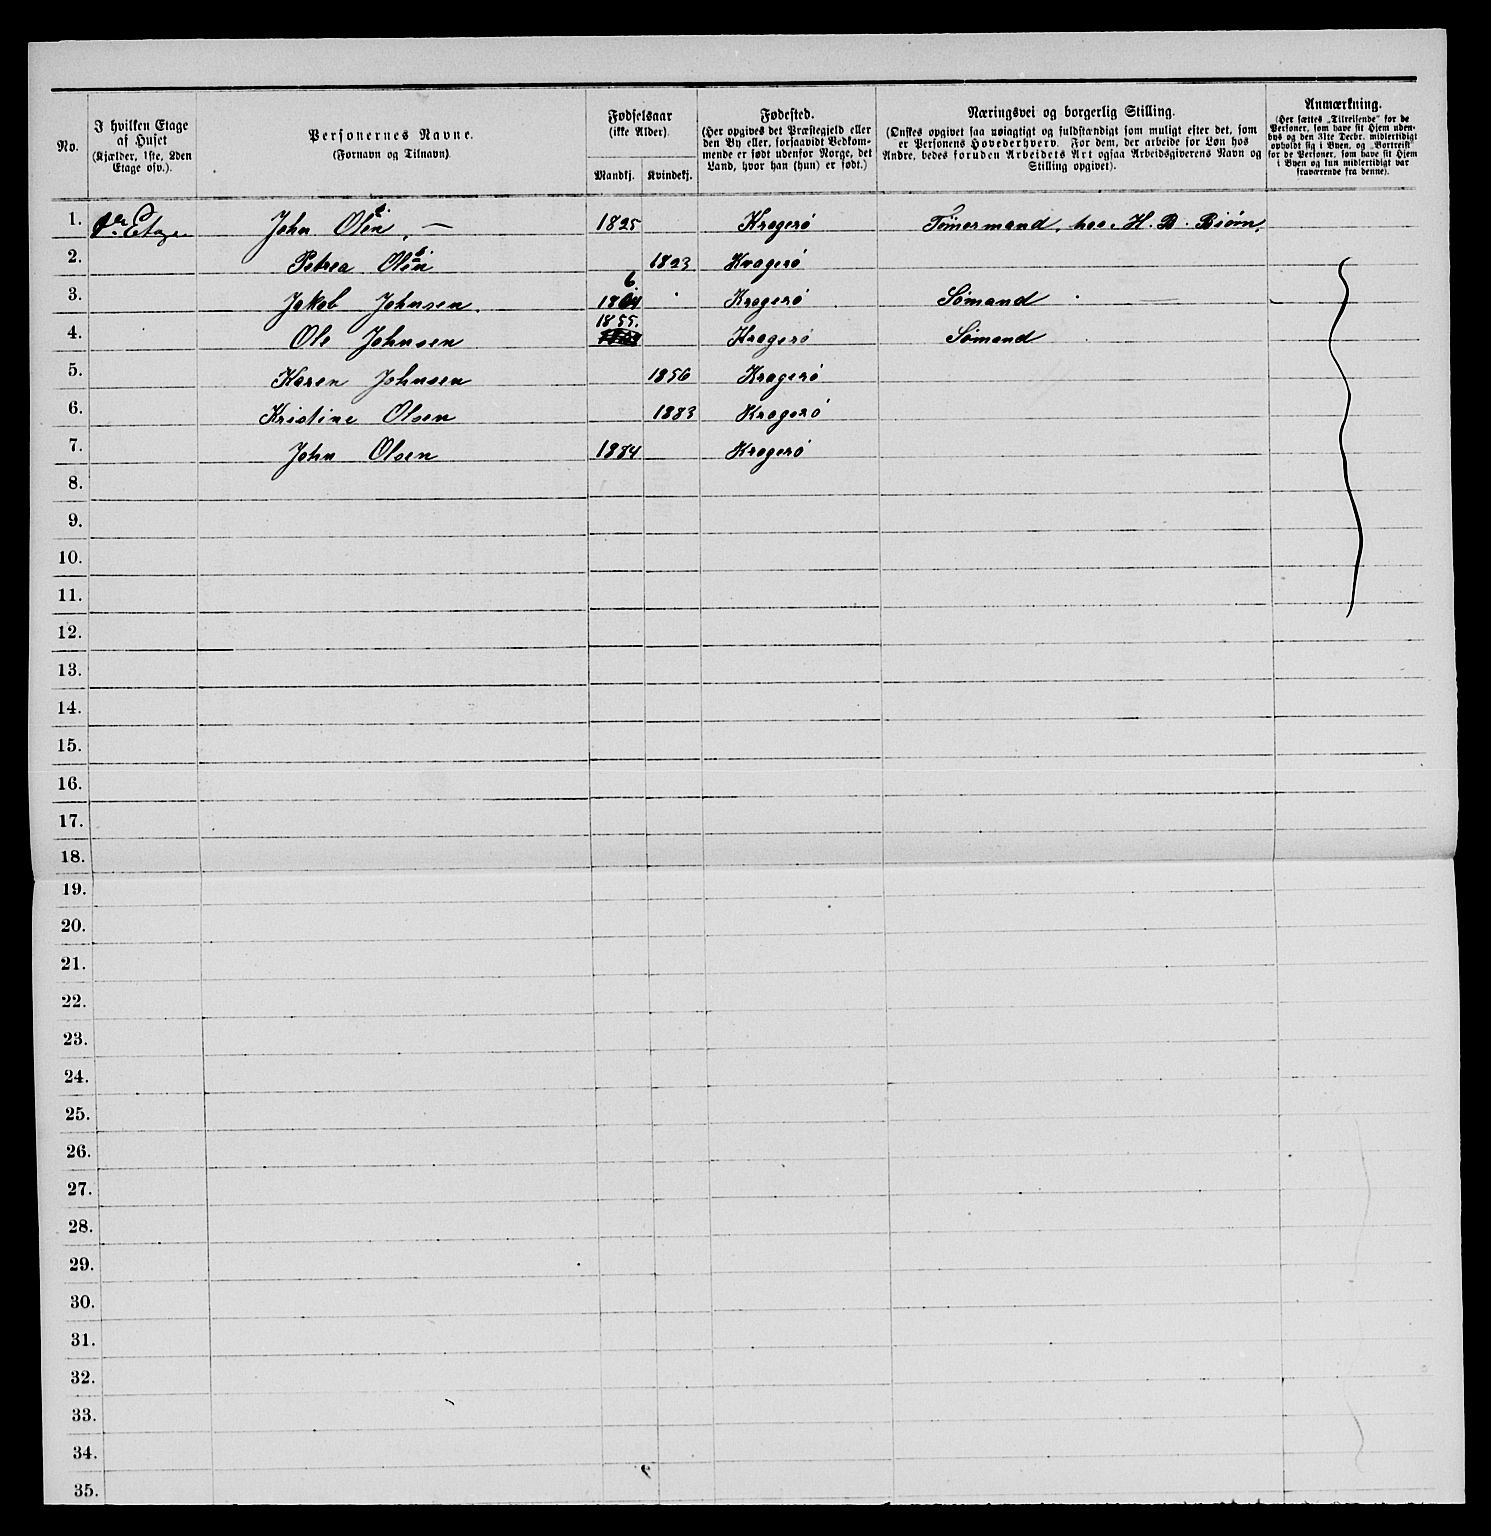 No.
I hvilken Etage af Huset
(Kjælder, 1ste, 2den Etage osv.).
Personernes Navne.
(Fornavn og Tilnavn)
Fødselsaar
(ikke Alder).
Mandkj. Kvindekj.
Fødested.
(Her opgives det Præstegjeld eller
den By eller, forsaavidt Vedkom-
mende er født udenfor Norge, det
Land, hvor han (hun) er født.)
Næringsvei og borgerlig Stilling.
(Ønskes opgivet saa nøiagtigt og fuldstændigt som muligt efter det, som
er Personens Hovederhverv. For dem, der arbeide for Løn hos
Andre, bedes foruden Arbeidets Art ogsaa Arbeidsgiverens Navn og
Stilling opgivet).
Anmærkning.
(Her sættes „Tilreisende" for de
Personer, som have sit Hjem uden-
bys og den 31te Decbr. midlertidigt
opholdt sig i Byen, og „Bortreist"
for de Personer, som have sit Hjem
i Byen og kun midlertidigt var
fraværende fra denne).
1. Etage John Olsen 1825 Kragerø Tømermand, hos H. B. Biørn.
2. Petrea Olsen 1823 Kragerø
3. Jakob Johnsen. 1864 Kragerø Sømand
4. Ole Johnsen 1855. Kragerø Sømand
5. Karen Johnsen 1856 Kragerø
6. Kristine Olsen 1883 Kragerø
7. John Olsen 1884 Kragerø
8.
9.
10.
11.
12.
13.
14.
15.
16.
17.
18.
19.
20.
21.
22.
23.
24.
25.
26.
27.
28.
29.
30.
31.
32.
33.
34.
35.